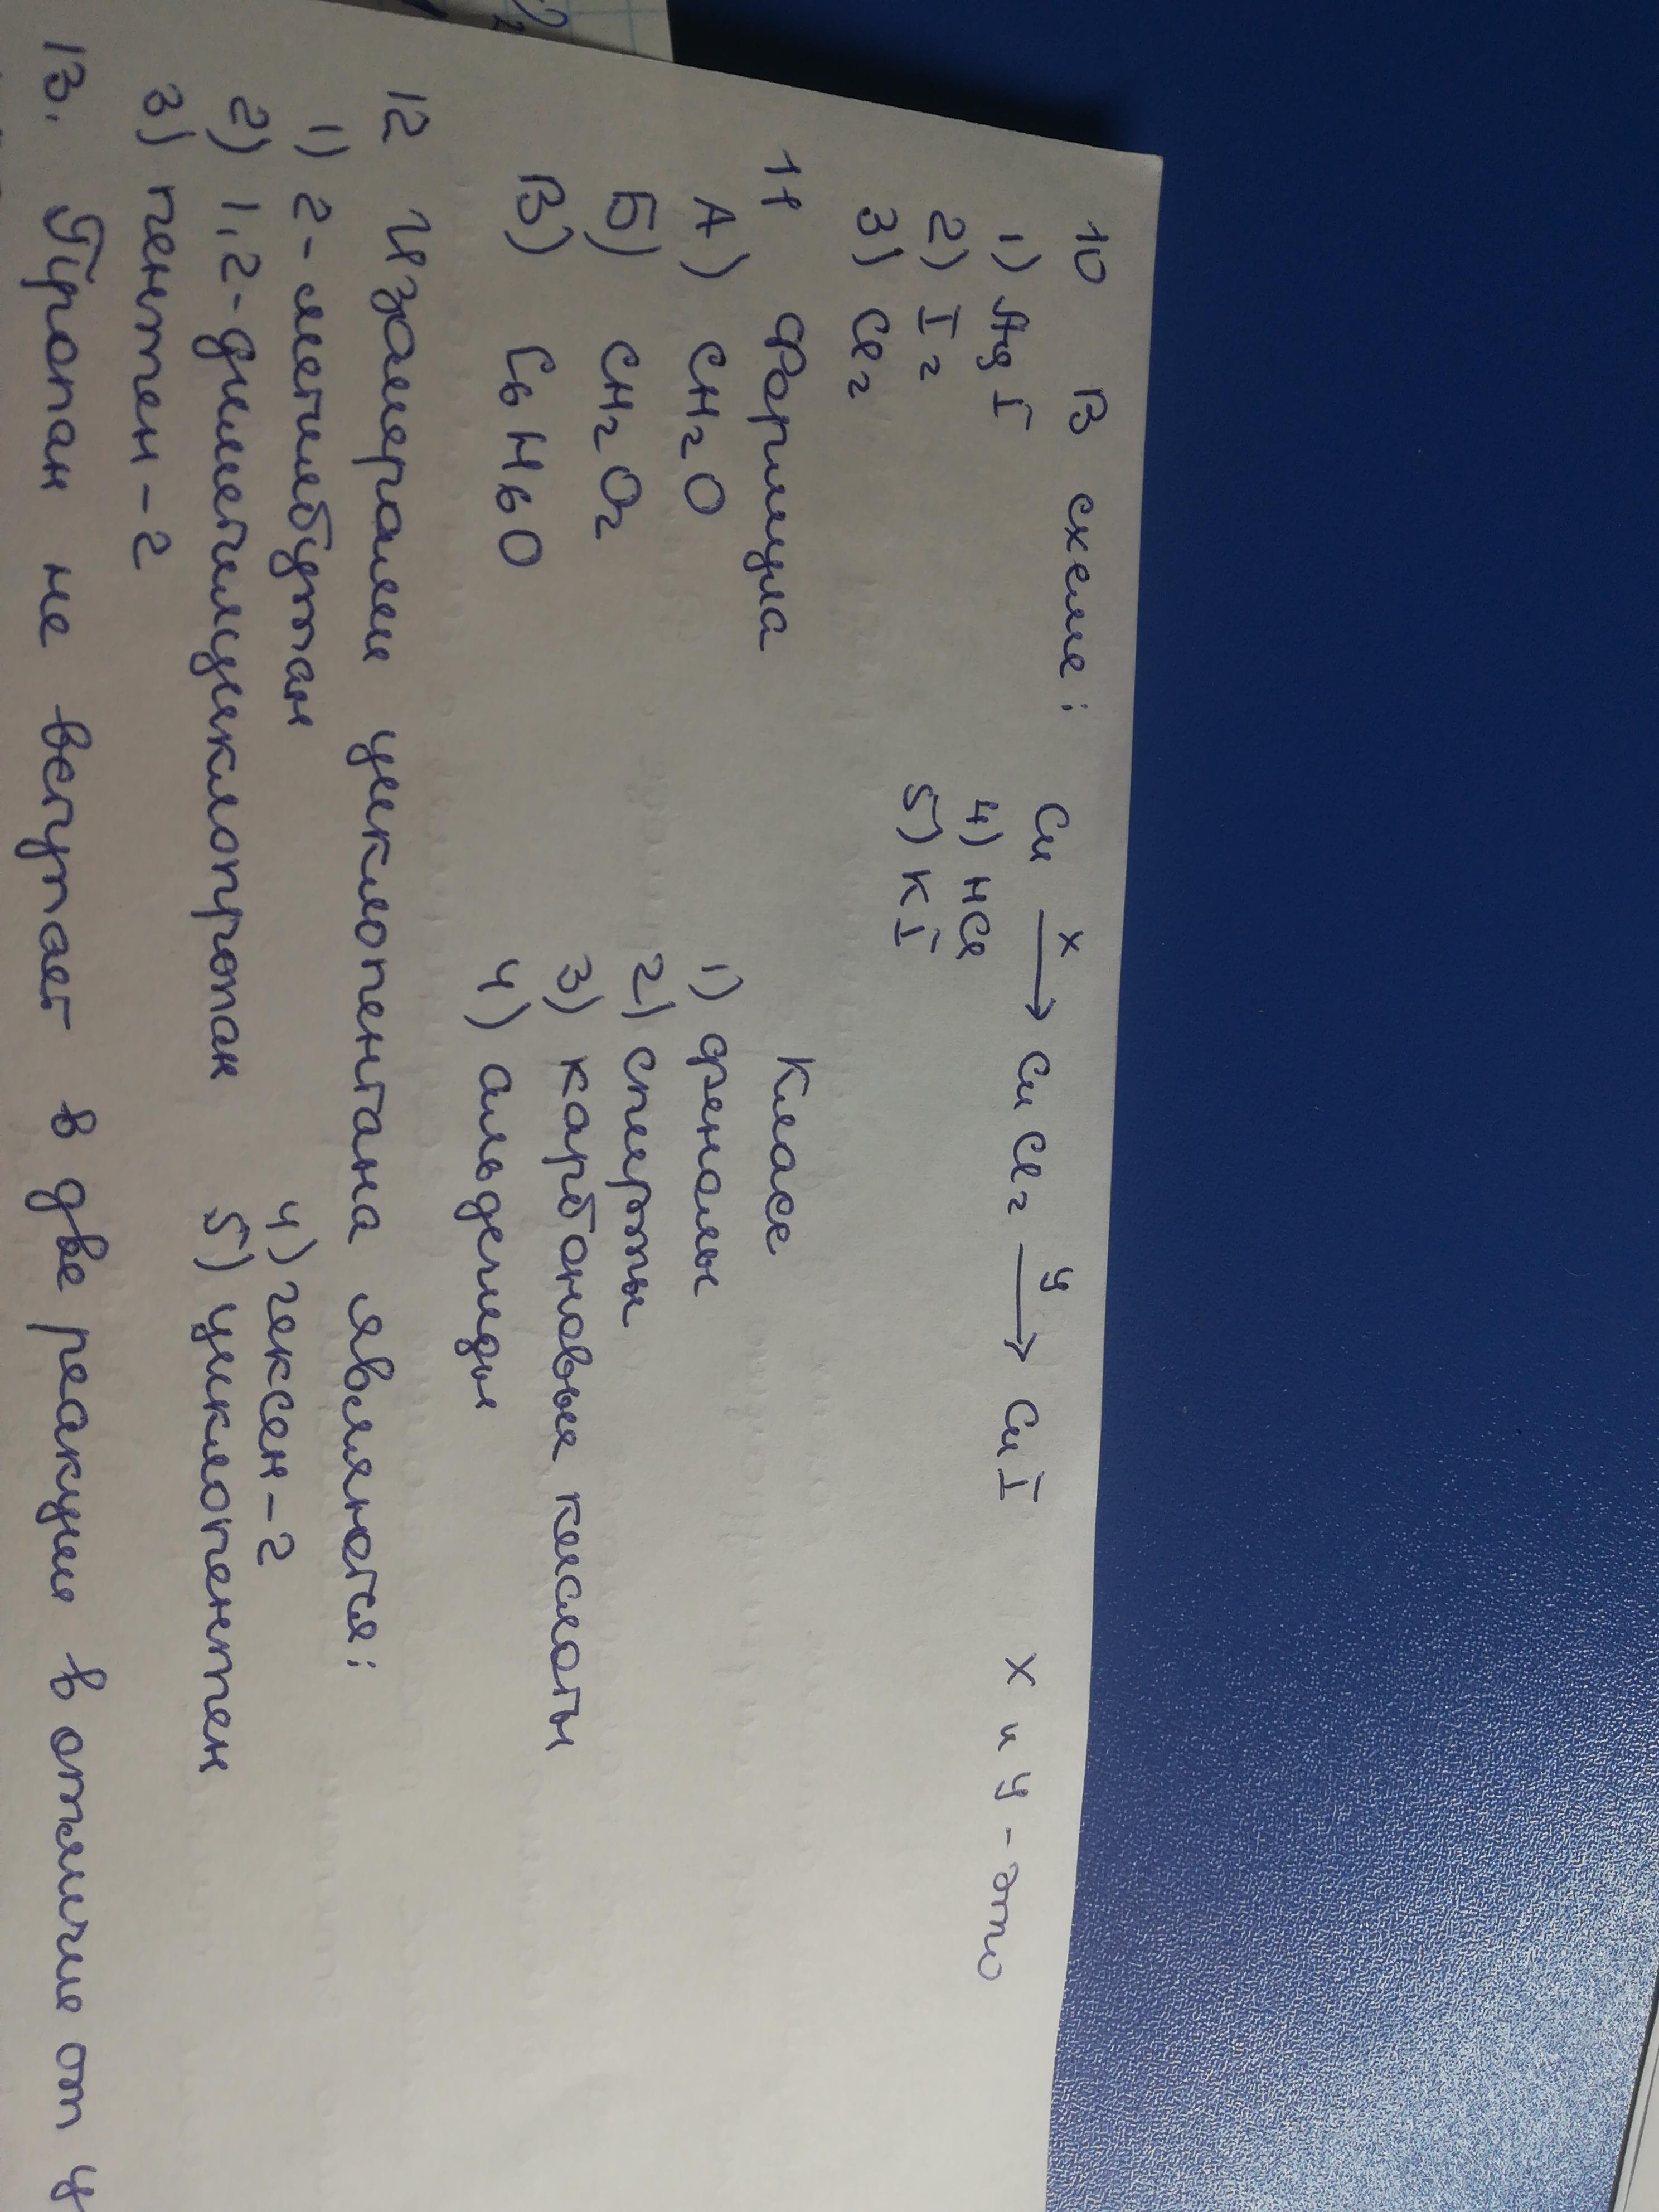 10 В схеме: Cu —x→ CuCl2 —y→ CuI   x и y - это
1) AgI   4) HCl
2) I2   5) KI
3) Cl2
11 Формула   Класс
А) CH2O   1) фенолы
Б) CH2O2   2) спирты
В) C6H6O   3) карбоновые кислоты
4) альдегиды
12 Изомерами циклопентана являются:
1) 2-метилбутан   4) гексен-2
2) 1,2-диметилциклопропан   5) циклопентен
3) пентен-2
13. Пропан не вступает в две реакции в отличие от